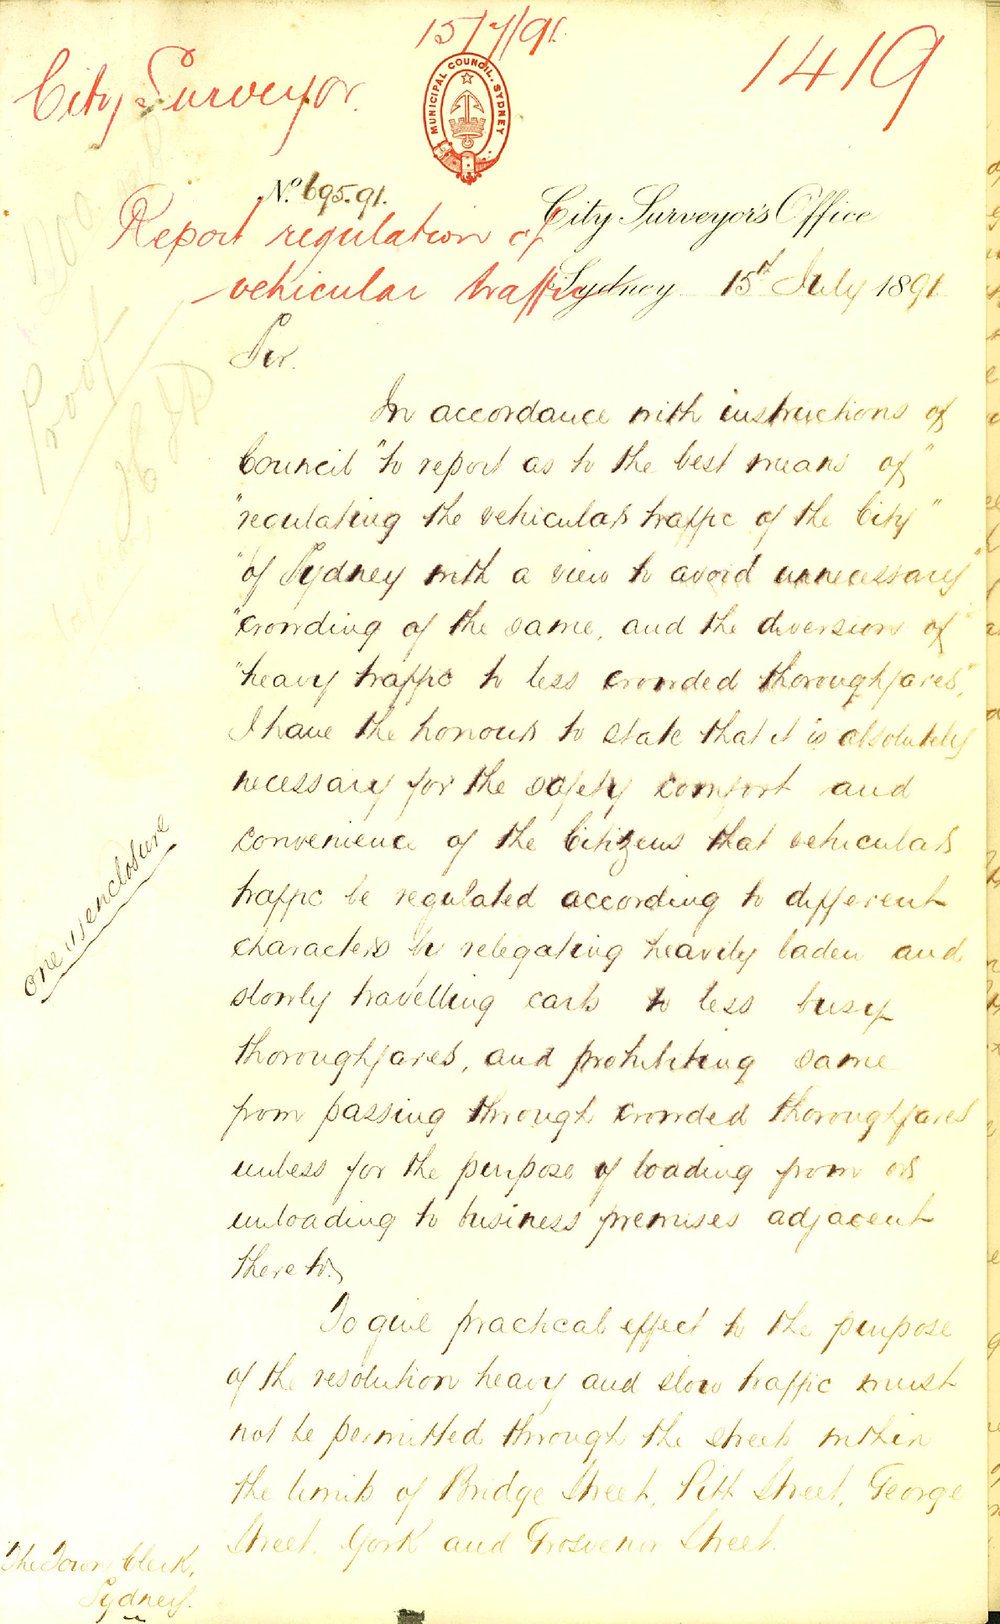 15/7/91.
1419
City Surveyor.
MUNICIPAL COUNCIL. SYDNEY
No. 695.91.
City Surveyor's Office
Report regulation of
vehicular traffic
Sydney 15th July 1891
Sir.
In accordance with instructions of
Council "to report as to the best means of"
"regulating the vehicular traffic of the City"
"of Sydney with a view to avoid unnecessary"
"crowding of the same, and the diversion of"
"heavy traffic to less crowded thoroughfares",
I have the honour to state that it is absolutely
necessary for the safety comfort and
convenience of the Citizens that vehicular
traffic be regulated according to different
characters by relegating heavily laden and
slowly travelling carts to less busy
thoroughfares, and prohibiting same
from passing through crowded thoroughfares
unless for the purpose of loading from or
unloading to business premises adjacent
thereto.
To give practical effect to the purpose
of the resolution heavy and slow traffic must
not be permitted through the streets within
the limits of Bridge Street, Pitt Street, George
Street. York and Grosvenor Street.
one enclosure
Proof
The Town Clerk,
Sydney.